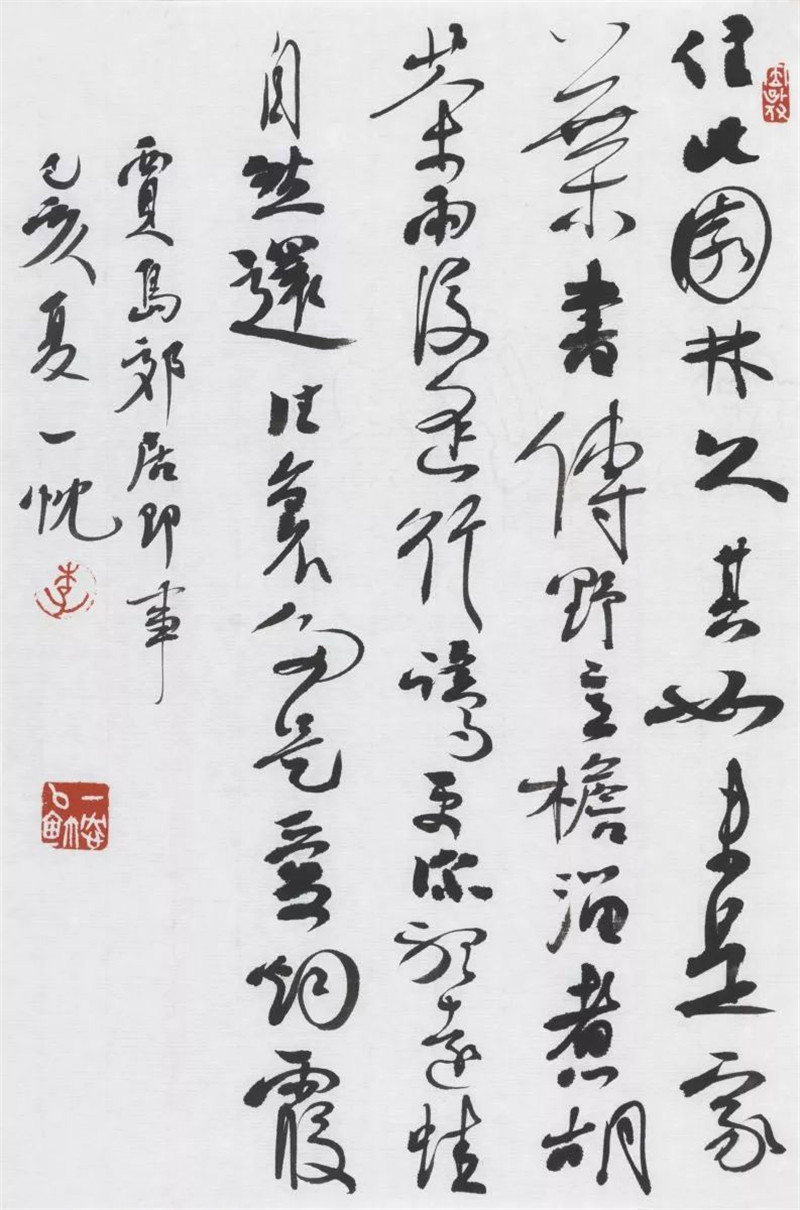 住此園林久其如未是家
葉書傳野意檐溜煮胡
茶雨後逢行鷺更深聽遠蛙
自然還往裏多是愛烟霞
賈島郊居即事
己亥夏一忱
李